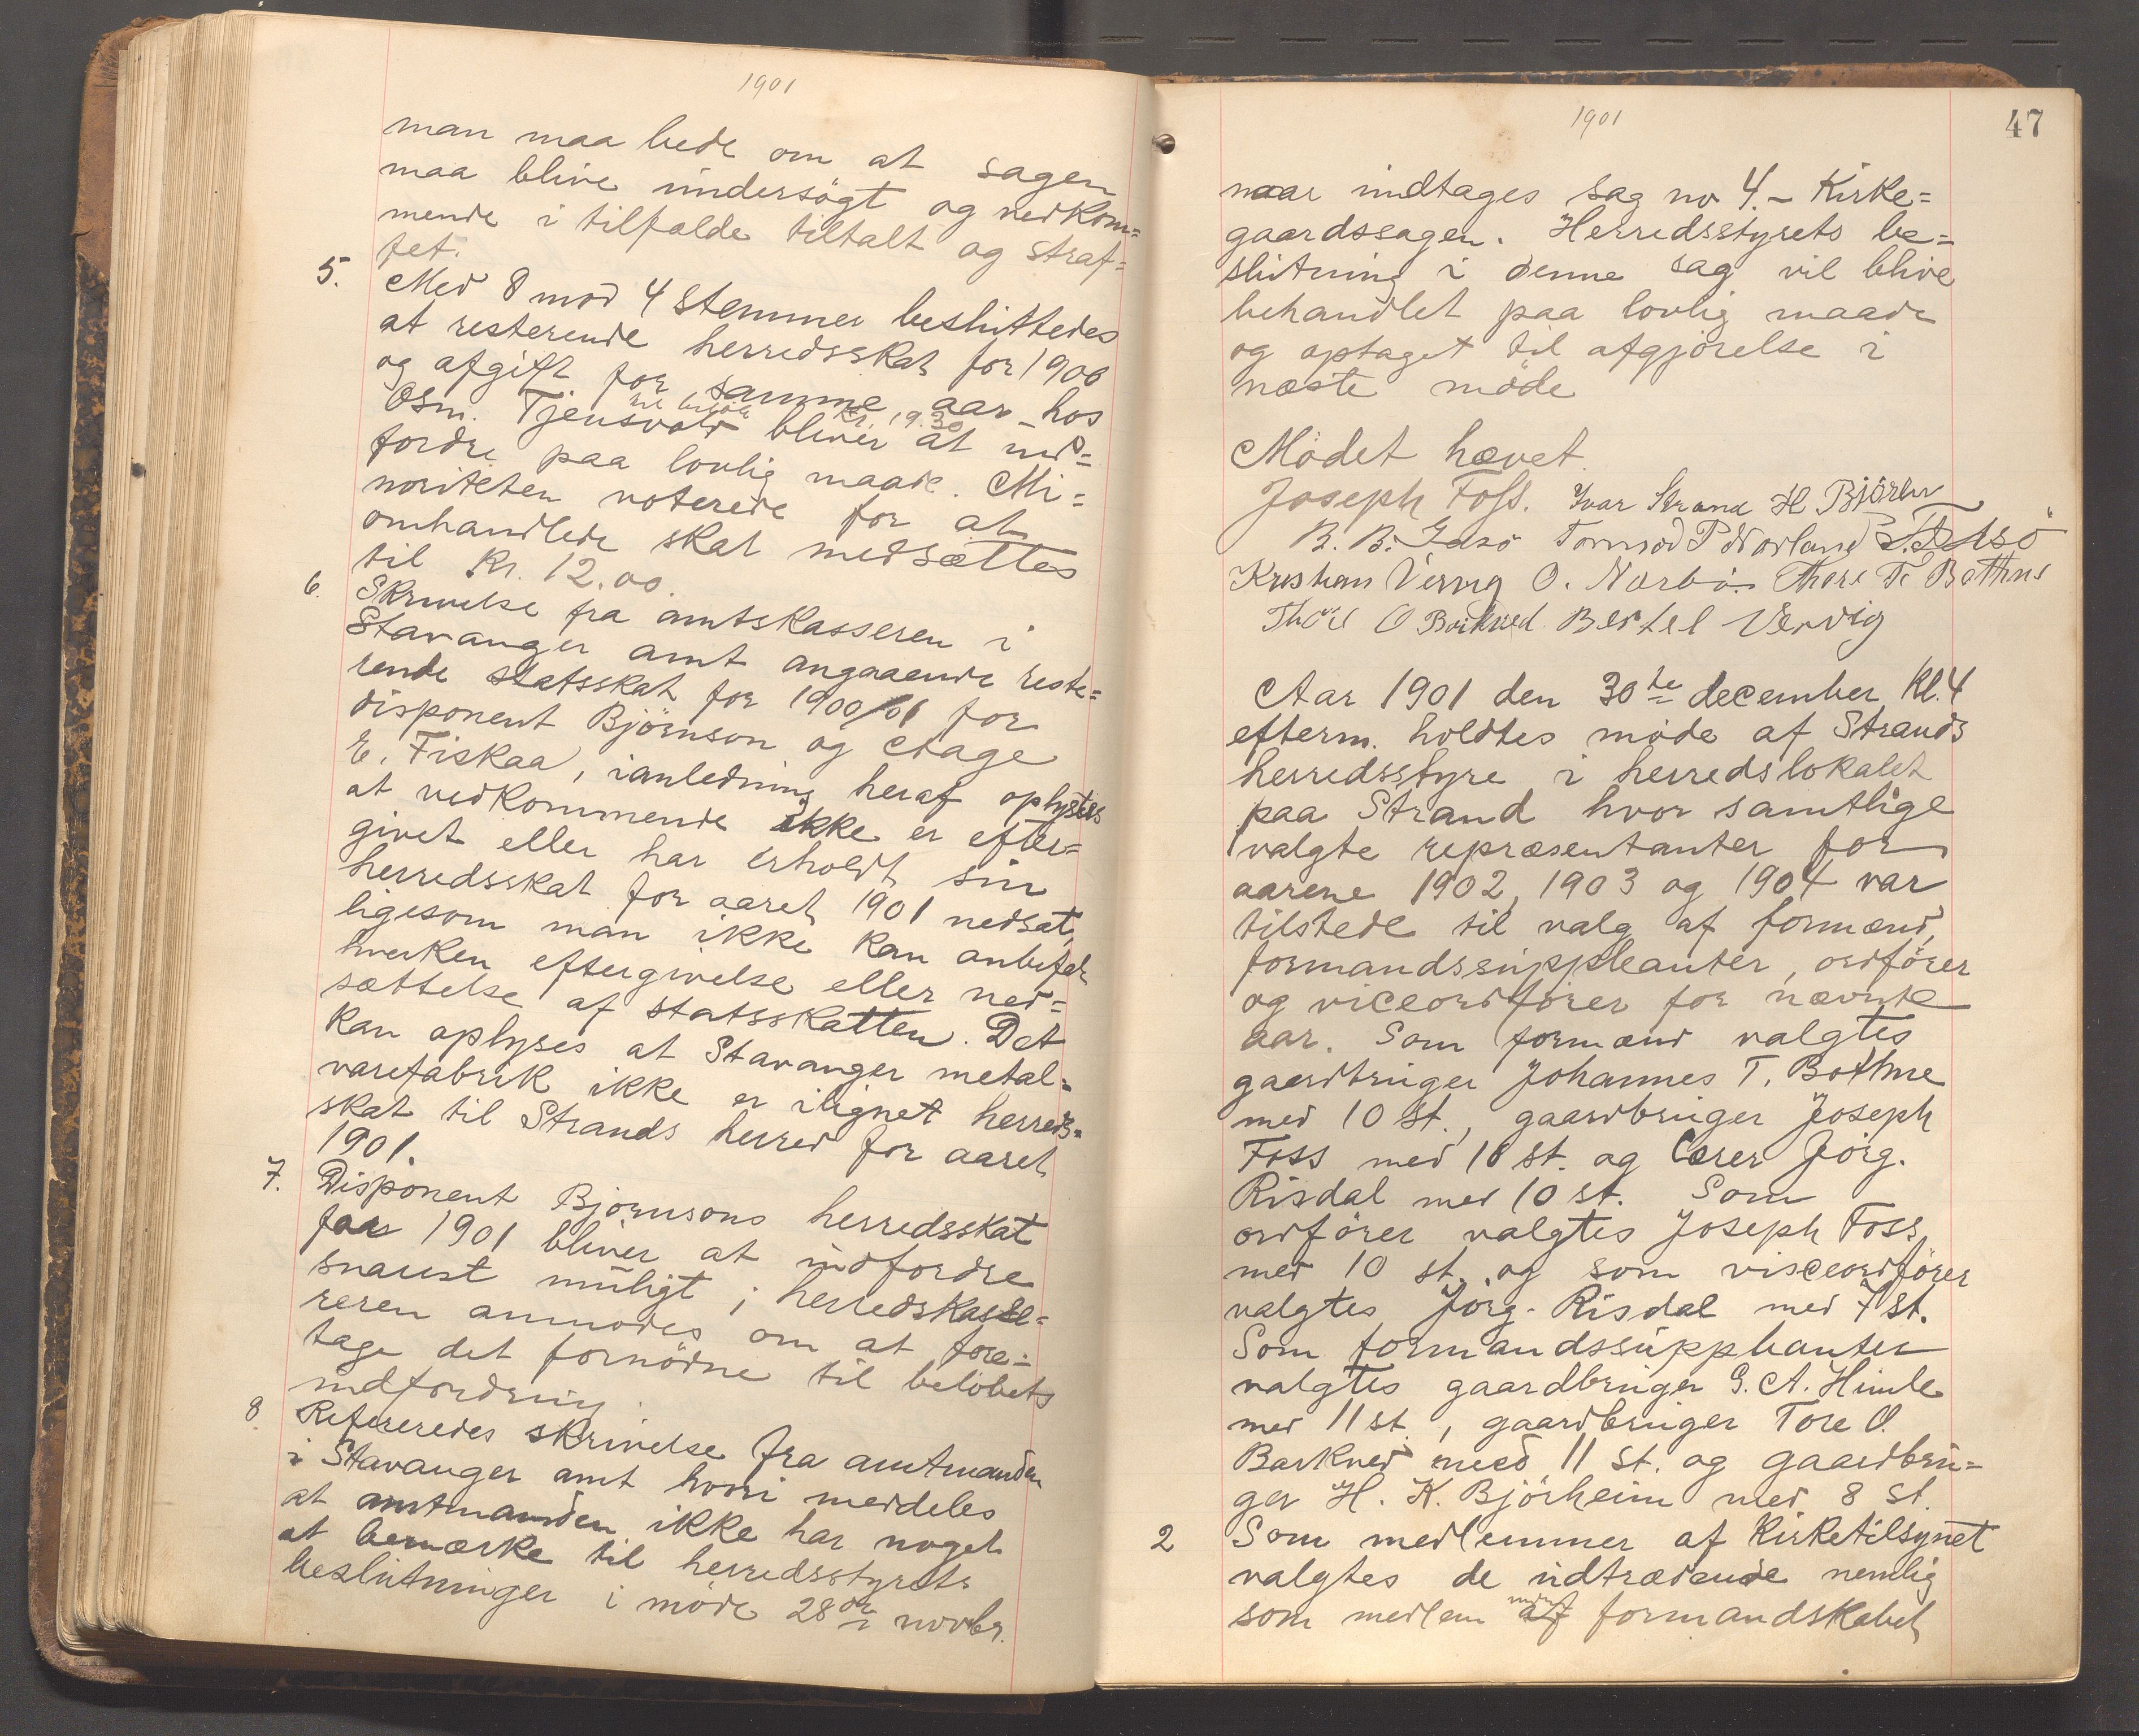 1901
man maa bede om at sagen
maa blive undersögt og vedkom=
mende i tilfælde tiltalt og straf=
fet.
5. Med 8 mod 4 stemmer besluttedes
at resterende herredsskat for 1900
og afgift for samme aar hos
til beløb Kr. 19.30
Osm. Tjensvold bliver at ind=
fordre paa lovlig maade. Mi=
noriteten voterede for at
omhandlede skat nedsættes
til Kr. 12.00.
6. Skrivelse fra amtskasseren i
Stavanger amt angaaende reste=
rende statsskat for 1900/01 for
disponent Björnson og Aage
E. Fiskaa, ianledning heraf oplystes
at vedkommende ikke er efter=
givet eller har erholdt sin
herredsskat for aaret 1901 nedsat,
ligesom man ikke kan anbefale
hverken eftergivelse eller ned=
sættelse af statsskatten. Det
kan oplyses at Stavanger metal=
varefabrik ikke er ilignet herreds=
skat til Strands herred for aaret
1901.
7. Disponent Bjornsons herredsskat
for 1901 bliver at indfordre
snarest muligt; herredskasse=
reren anmodes om at fore=
tage det fornödne til belöbets
indfordring.
8. Refereredes skrivelse fra amtmanden
i Stavanger amt hvori meddeles
at amtmanden ikke har noget
at bemærke til herredsstyrets
beslutninger i møde 28de novbr.
1901
47
naar indtages sag no 4. - Kirke=
gaardssagen. Herredsstyrets be=
slutning i denne sag vil blive
behandlet paa lovlig maade
og optaget til afgjörelse i
næste möde
Mödet hævet.
Joseph Foss. Ivar Strand H Björhei
B. B. Idsö Tormod P Norland B. T. Idsö
Kristian Vervig O. Norbö. Thore T. Bothne
Thore O Barkved. Bertel Vervig
Aar 1901 den 30te december Kl. 4
efterm. holdtes möde af Strands
herredsstyre i herredslokalet
paa Strand hvor samtlige
valgte repræsentanter for
aarene 1902, 1903 og 1904 var
tilstede til valg af formænd,
formandssuppleanter, ordförer
og viceordförer for nævnte
aar. Som formænd valgtes
gaardbruger Johannes T. Bothne
med 10 st., gaardbruger Joseph
Foss med 10 st. og lærer Jörg.
Risdal med 10 st. Som
ordförer valgtes Joseph Foss
med 10 st. og som visceordförer
valgtes Jörg. Risdal med 7 st.
Som formandssuppleanter
valgtes gaardbruger G. A. Himle
med 11 st., gaardbruger Tore O.
Barkved med 11 st. og gaardbru=
ger H. K. Björheim med 8 st.
2 Som medlemmer af Kirketilsynet
valgtes de udtrædende nemlig
som medlem af formandskabet